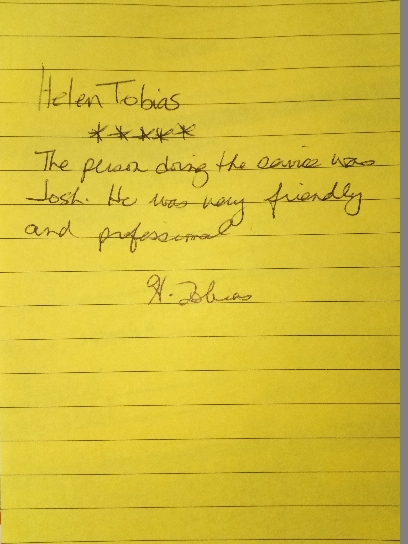 Helen Tobias
*****
The person doing the service was
Josh. He was very friendly
and professional
H. Tobias